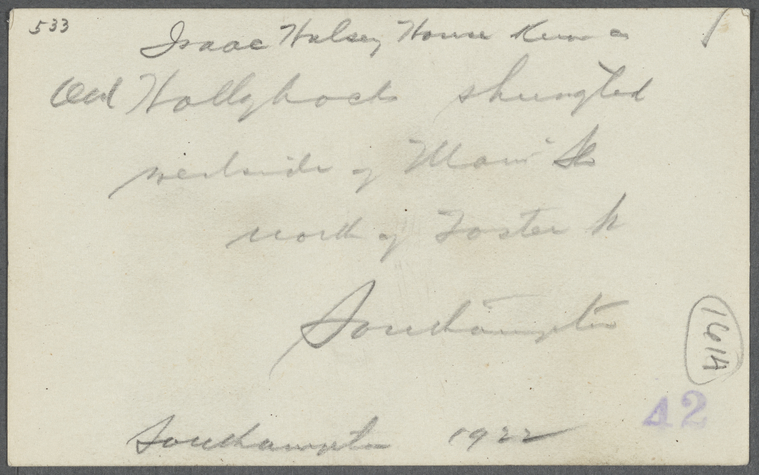 533
Isaac Halsey House Known as
Old Hollyhocks shingled
westside of Main St
north of Foster h
Southampton
1614
42
Southampton 1922